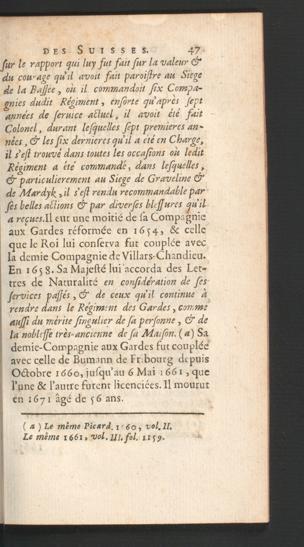 DES SUISSES. 47
sur le rapport qui luy fut fait sur la valeur &
du courage qu'il avoit fait paroistre au Siege
de la Bassée, où il commandoit six Compa-
gnies dudit Régiment, ensorte qu'après sept
années de service actuel, il avoit été fait
Colonel, durant lesquelles sept premieres an-
nées, & les six dernieres qu'il a été en Charge,
il s'est trouvé dans toutes les occasions où ledit
Régiment a été commandé, dans lesquelles,
& particulierement au Siege de Graveline &
de Mardyk, il s'est rendu recommandable par
ses belles actions & par diverses blessures qu'il
a reçues. Il eut une moitié de sa Compagnie
aux Gardes réformée en 1654, & celle
que le Roi lui conserva fut couplée avec
la demie Compagnie de Villars-Chandieu.
En 1658. Sa Majesté lui accorda des Let-
tres de Naturalité en considération de ses
services passés, & de ceux qu'il continue à
rendre dans le Régiment des Gardes, comme
aussi du mérite singulier de sa personne, & de
la noblesse très-ancienne de sa Maison. (a) Sa
demie-Compagnie aux Gardes fut couplée
avec celle de Bumann de Fribourg depuis
Octobre 1660, jusqu'au 6 Mai 1661, que
l'une & l'autre furent licenciées. Il mourut
en 1671 âgé de 56 ans.
(a) Le même Picard. 1660, vol. II.
Le même 1661, vol. III. fol. 1159.